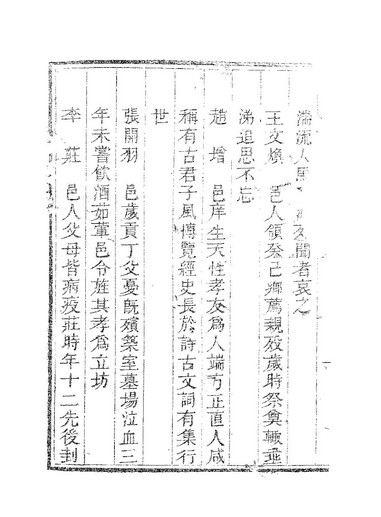 湍流人 聞者哀之
王文煥 邑人領癸己鄉薦親歿歲時祭奠輙垂
涕追思不忘
趙增 邑庠生天性孝友爲人端方正直人咸
稱有古君子風博覽經史長於詩古文詞有集行
世
張開羽 邑歲貢丁父憂既殯築室墓塲泣血三
年未嘗飲酒茹葷邑令旌其孝爲立坊
李莊 邑人父母皆病疫莊時年十二先後刲